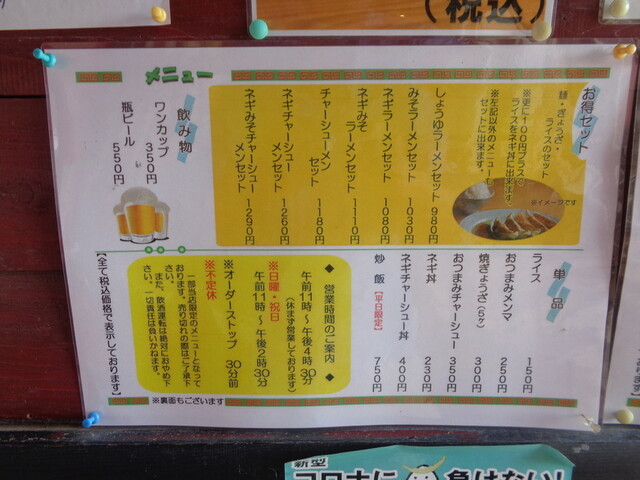 (税込)
メニュー
お得セット
麺・ぎょうざ・
ライスのセット
※更に100円プラスで
ライスをネギ丼に出来ます。
※左記以外のメニューも
セットに出来ます。
※イメージです
しょうゆラーメンセット 980円
みそラーメンセット 1030円
ネギラーメンセット 1080円
ネギみそ
ラーメンセット 1110円
チャーシューメン
セット 1180円
ネギチャーシュー
メンセット 1260円
ネギみそチャーシュー
メンセット 1290円
飲み物
ワンカップ 350円
瓶ビール 550円
単品
ライス 150円
おつまみメンマ 250円
焼ぎょうざ(5ヶ) 300円
おつまみチャーシュー 350円
ネギ丼 230円
ネギチャーシュー丼 400円
炒飯【平日限定】 750円
◆ 営業時間のご案内 ◆
午前11時～午後4時30分
(休まず営業しております)
※日曜・祝日
午前11時～午後2時30分
※オーダーストップ 30分前
※不定休
一部当店限定のメニューとなって
おります。売り切れの際はご了承下
さい。また、飲酒運転は絶対におやめ下
さい。一切責任は負いかねます。
【全て税込価格で表示しております】
※裏面もございます
新型
コロナに負けない!